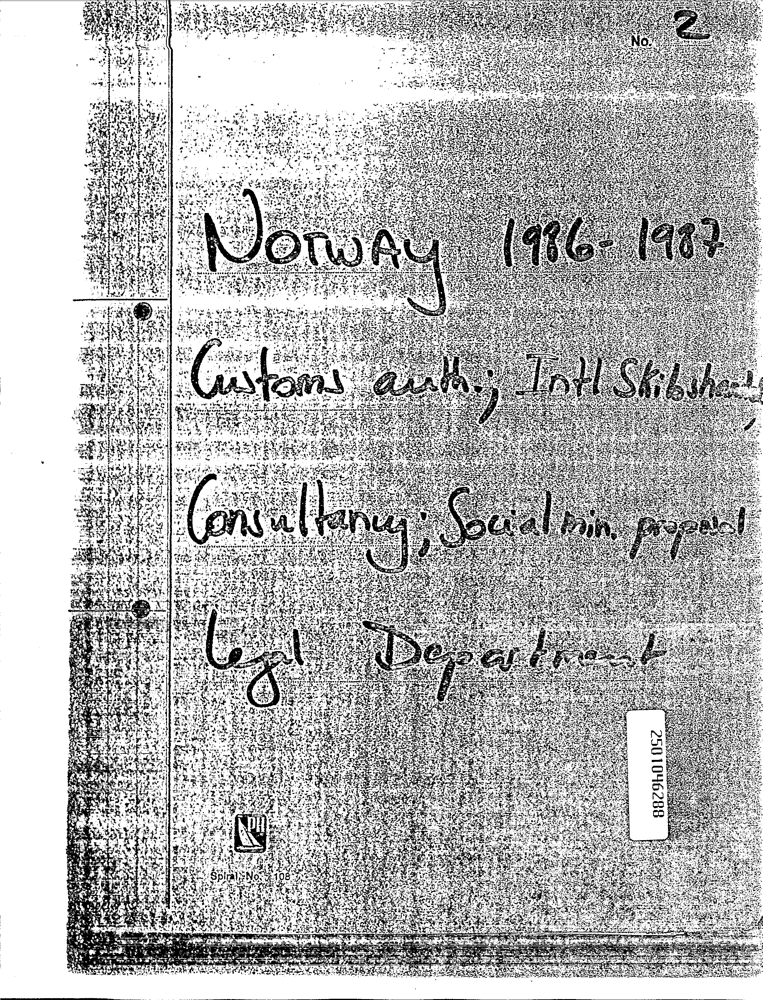 No. 2
Norway 1986-1987
Customs auth.; Intl
Consultancy; Social min. proposal
Legal Department
2501046288
Spiral-No. 108